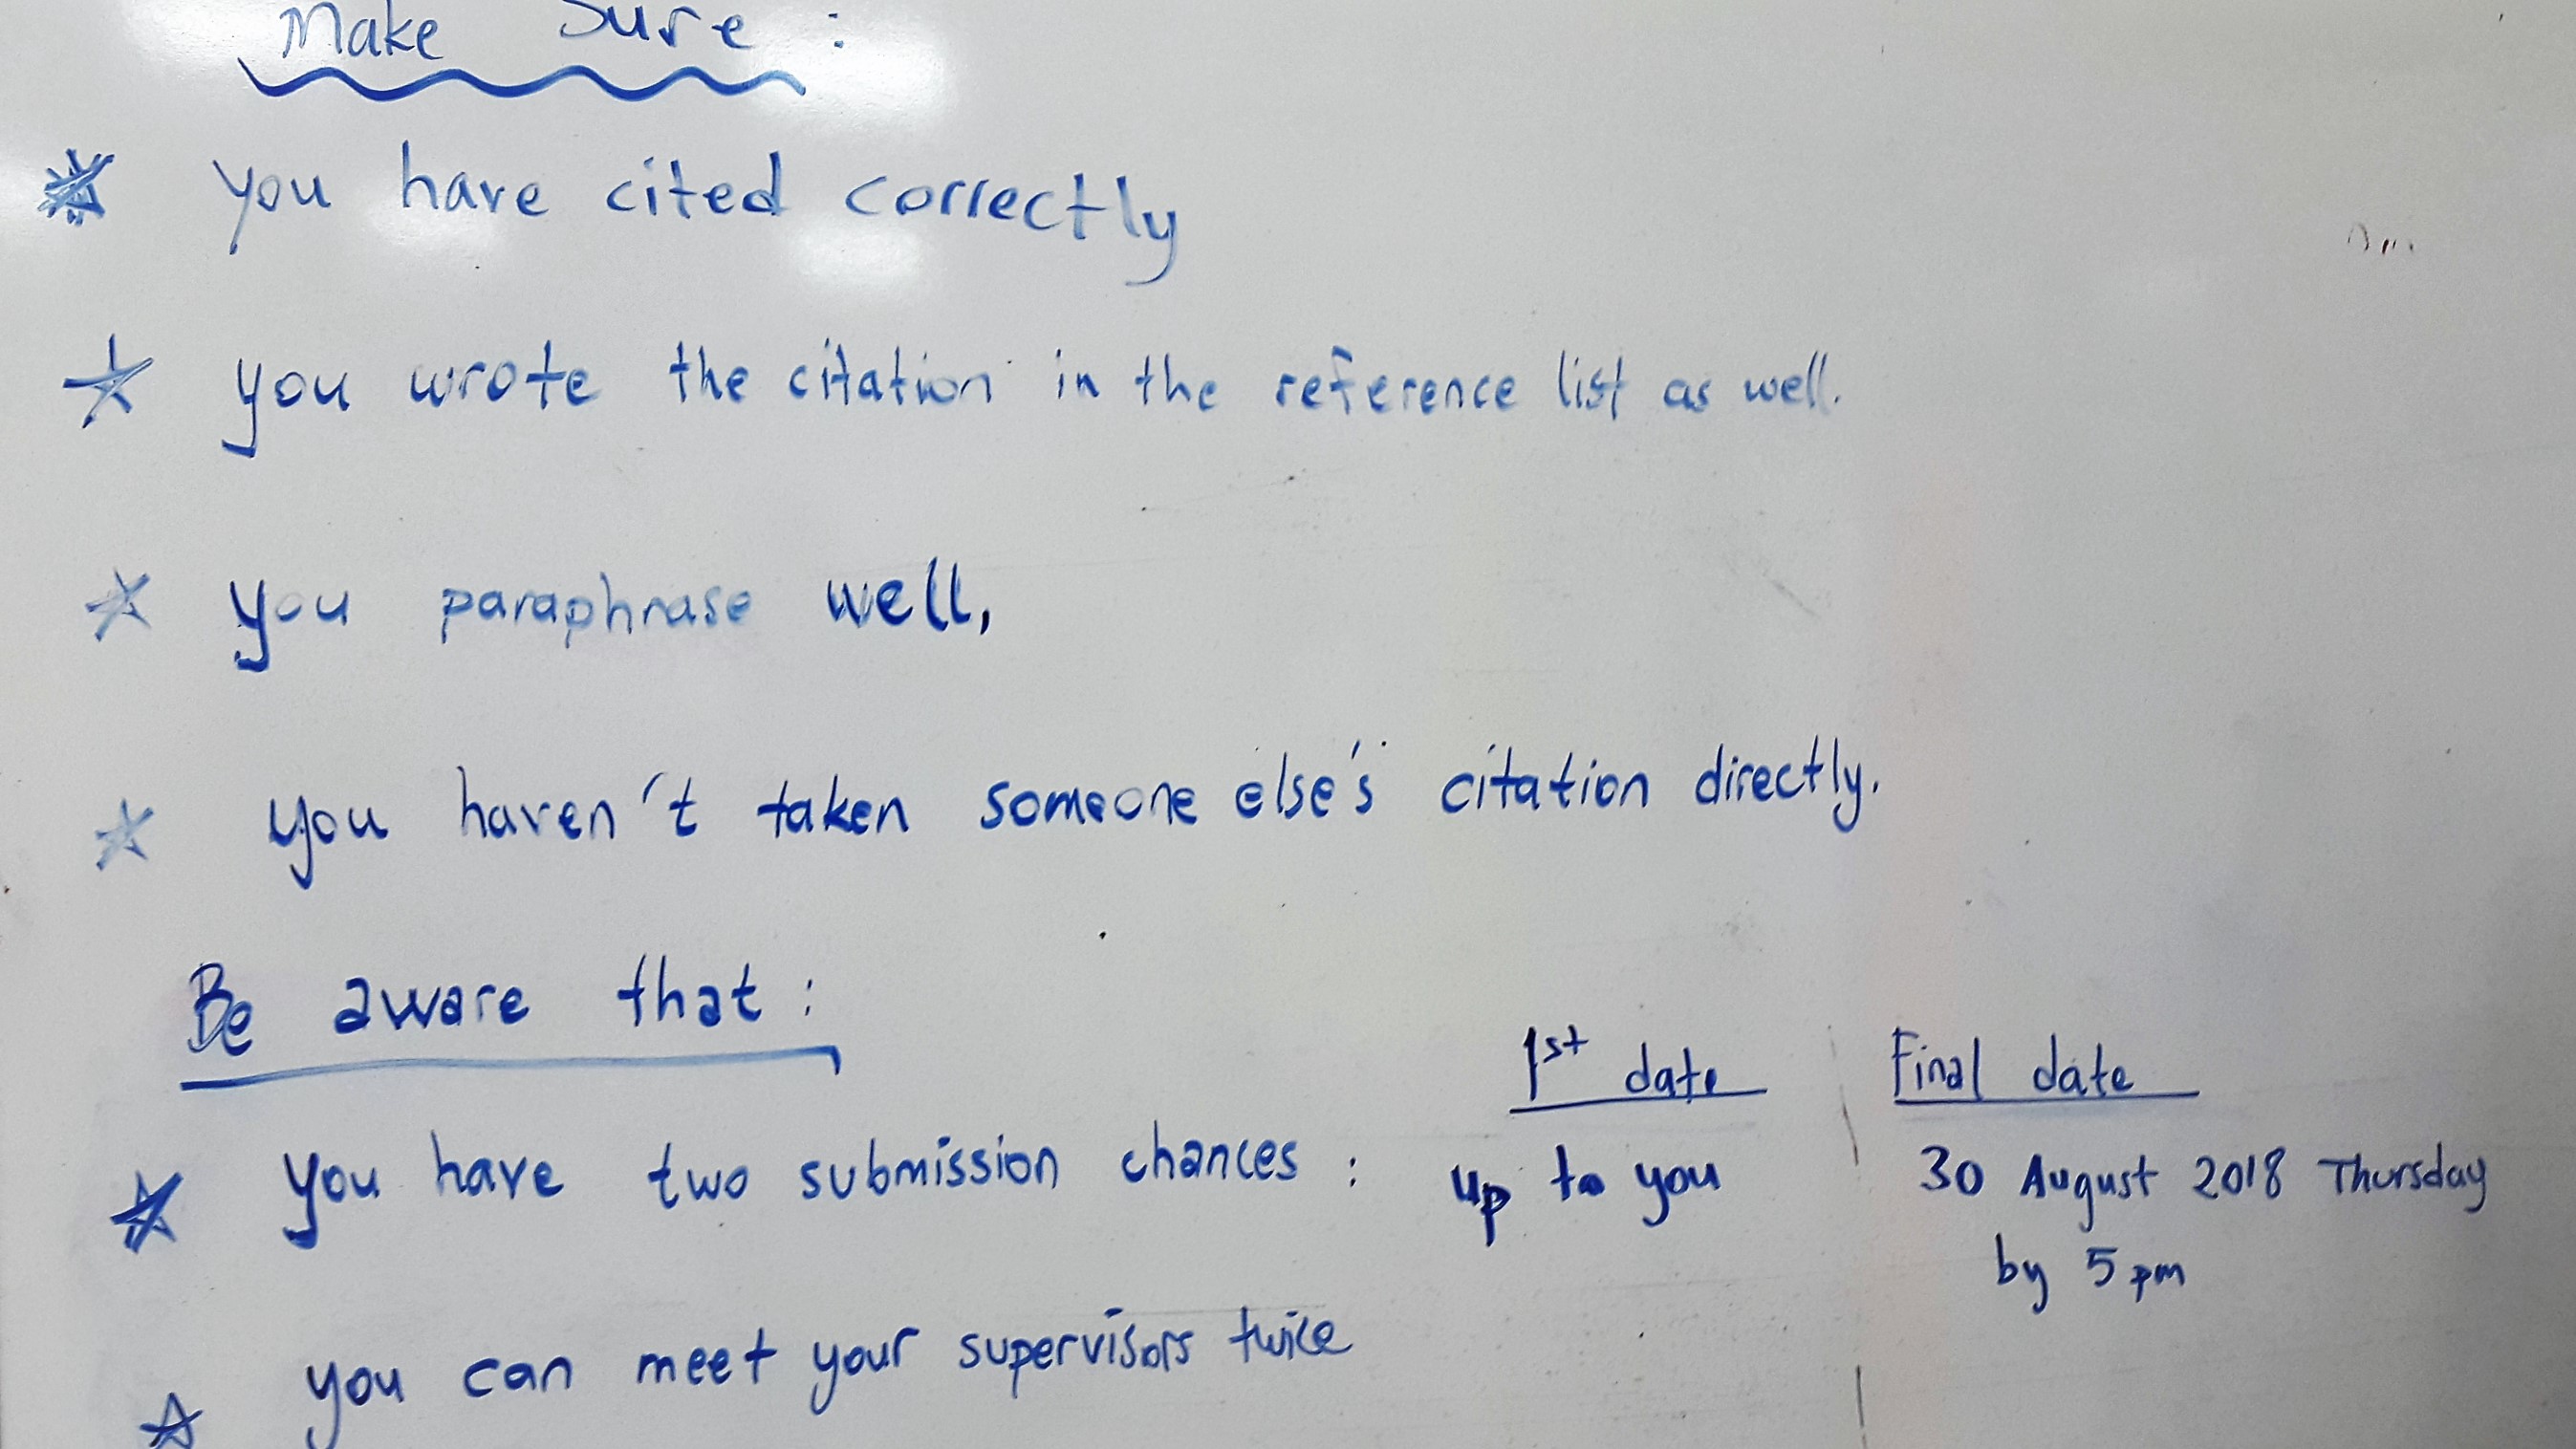 Make Sure :
you have cited correctly
you wrote the citation in the reference list as well.
you paraphrase well,
you haven't taken someone else's citation directly.
Be aware that :
1st date Final date
you have two submission chances : up to you 30 August 2018 Thursday
by 5 pm
you can meet your supervisors twice